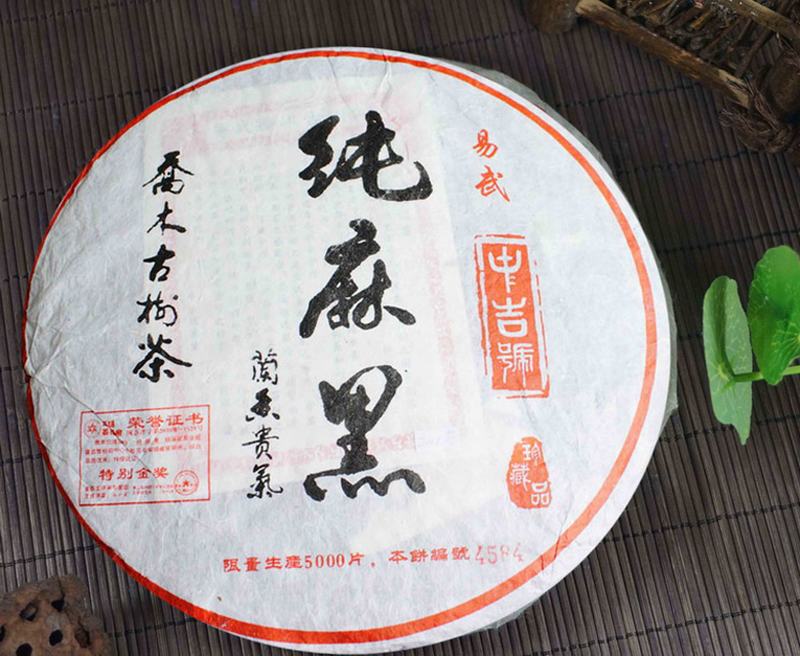 纯麻黑
喬木古樹茶
蘭香贵氣
易武
中吉號
珍藏品
荣誉证书
特别金奖
限量生產5000片，本餅編號4584